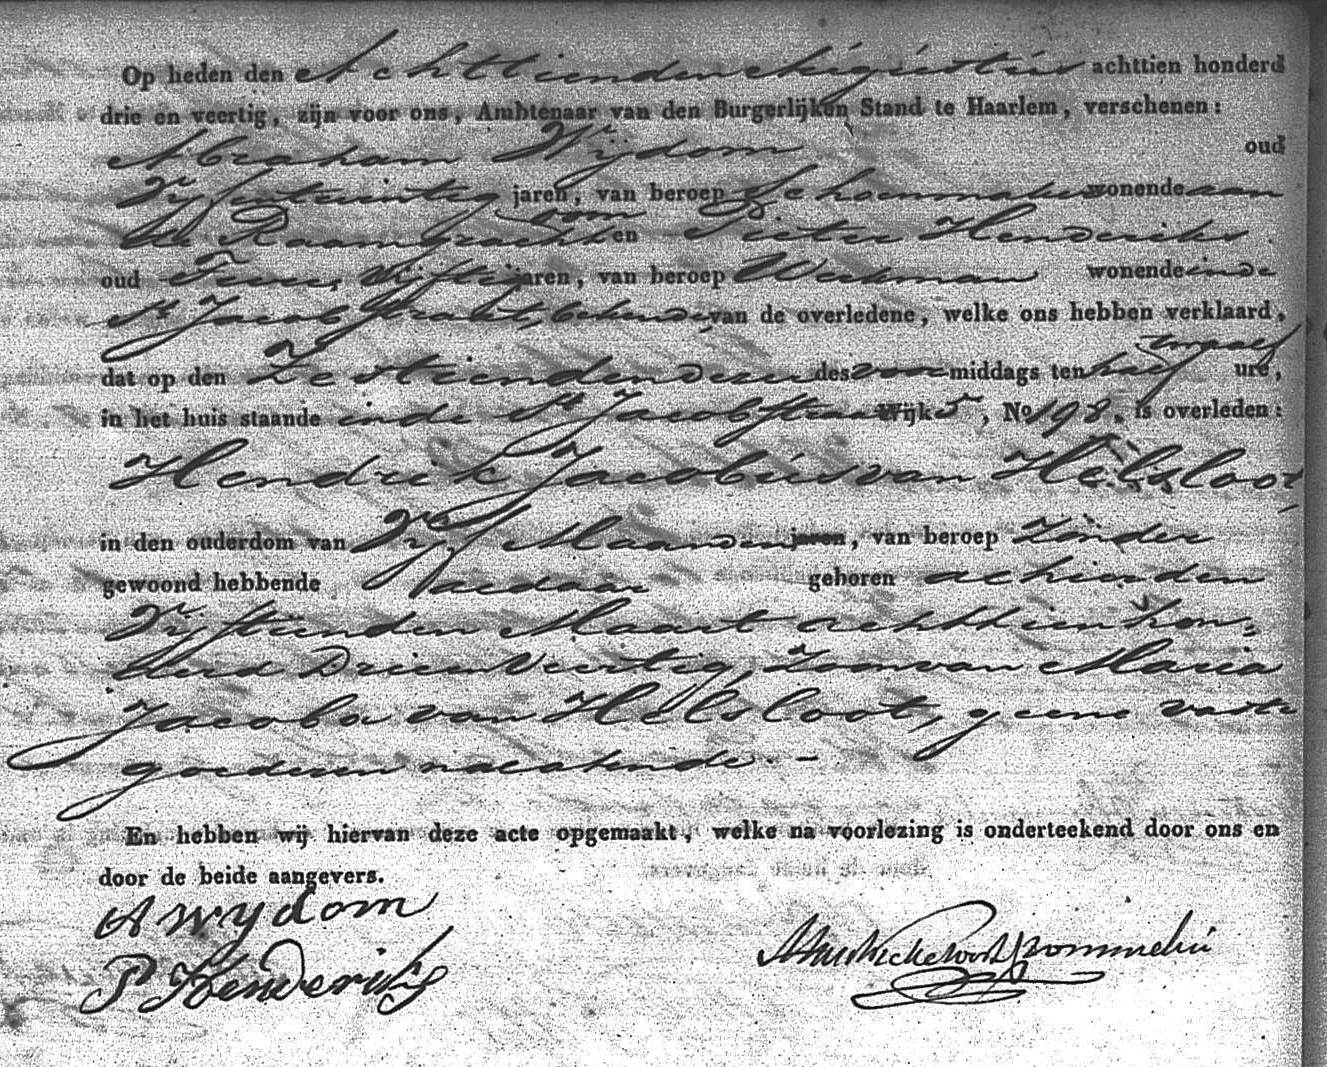 Op heden den Achttienden Augustus achttien honderd
drie en veertig, zijn voor ons, Ambtenaar van den Burgerlijken Stand te Haarlem, verschenen:
Abraham Wijdom oud
Vijfentwintig jaren, van beroep Schoenmaker wonende aan
de Raamgracht oom en Pieter Henderiks
oud Twee, Vijftig jaren, van beroep Werkman wonende inde
St Jacobstraat, bekende van de overledene, welke ons hebben verklaard,
dat op den Zestienden dezer des voor middags ten half twaalf ure,
in het huis staande inde St Jacobstraat Wijk 5, No 198. is overleden:
Hendrik Jacobus van Helsloot
in den ouderdom van Vijf Maanden jaren, van beroep Zonder
gewoond hebbende Aldaar geboren alhier den
Vijftienden Maart achttien hon„
derd Drieenveertig, Zoon van Maria
Jacoba van Helsloot, geene vaste
goederen nalatende. -
En hebben wij hiervan deze acte opgemaakt, welke na voorlezing is onderteekend door ons en
door de beide aangevers.
A wydom
P Henderiks